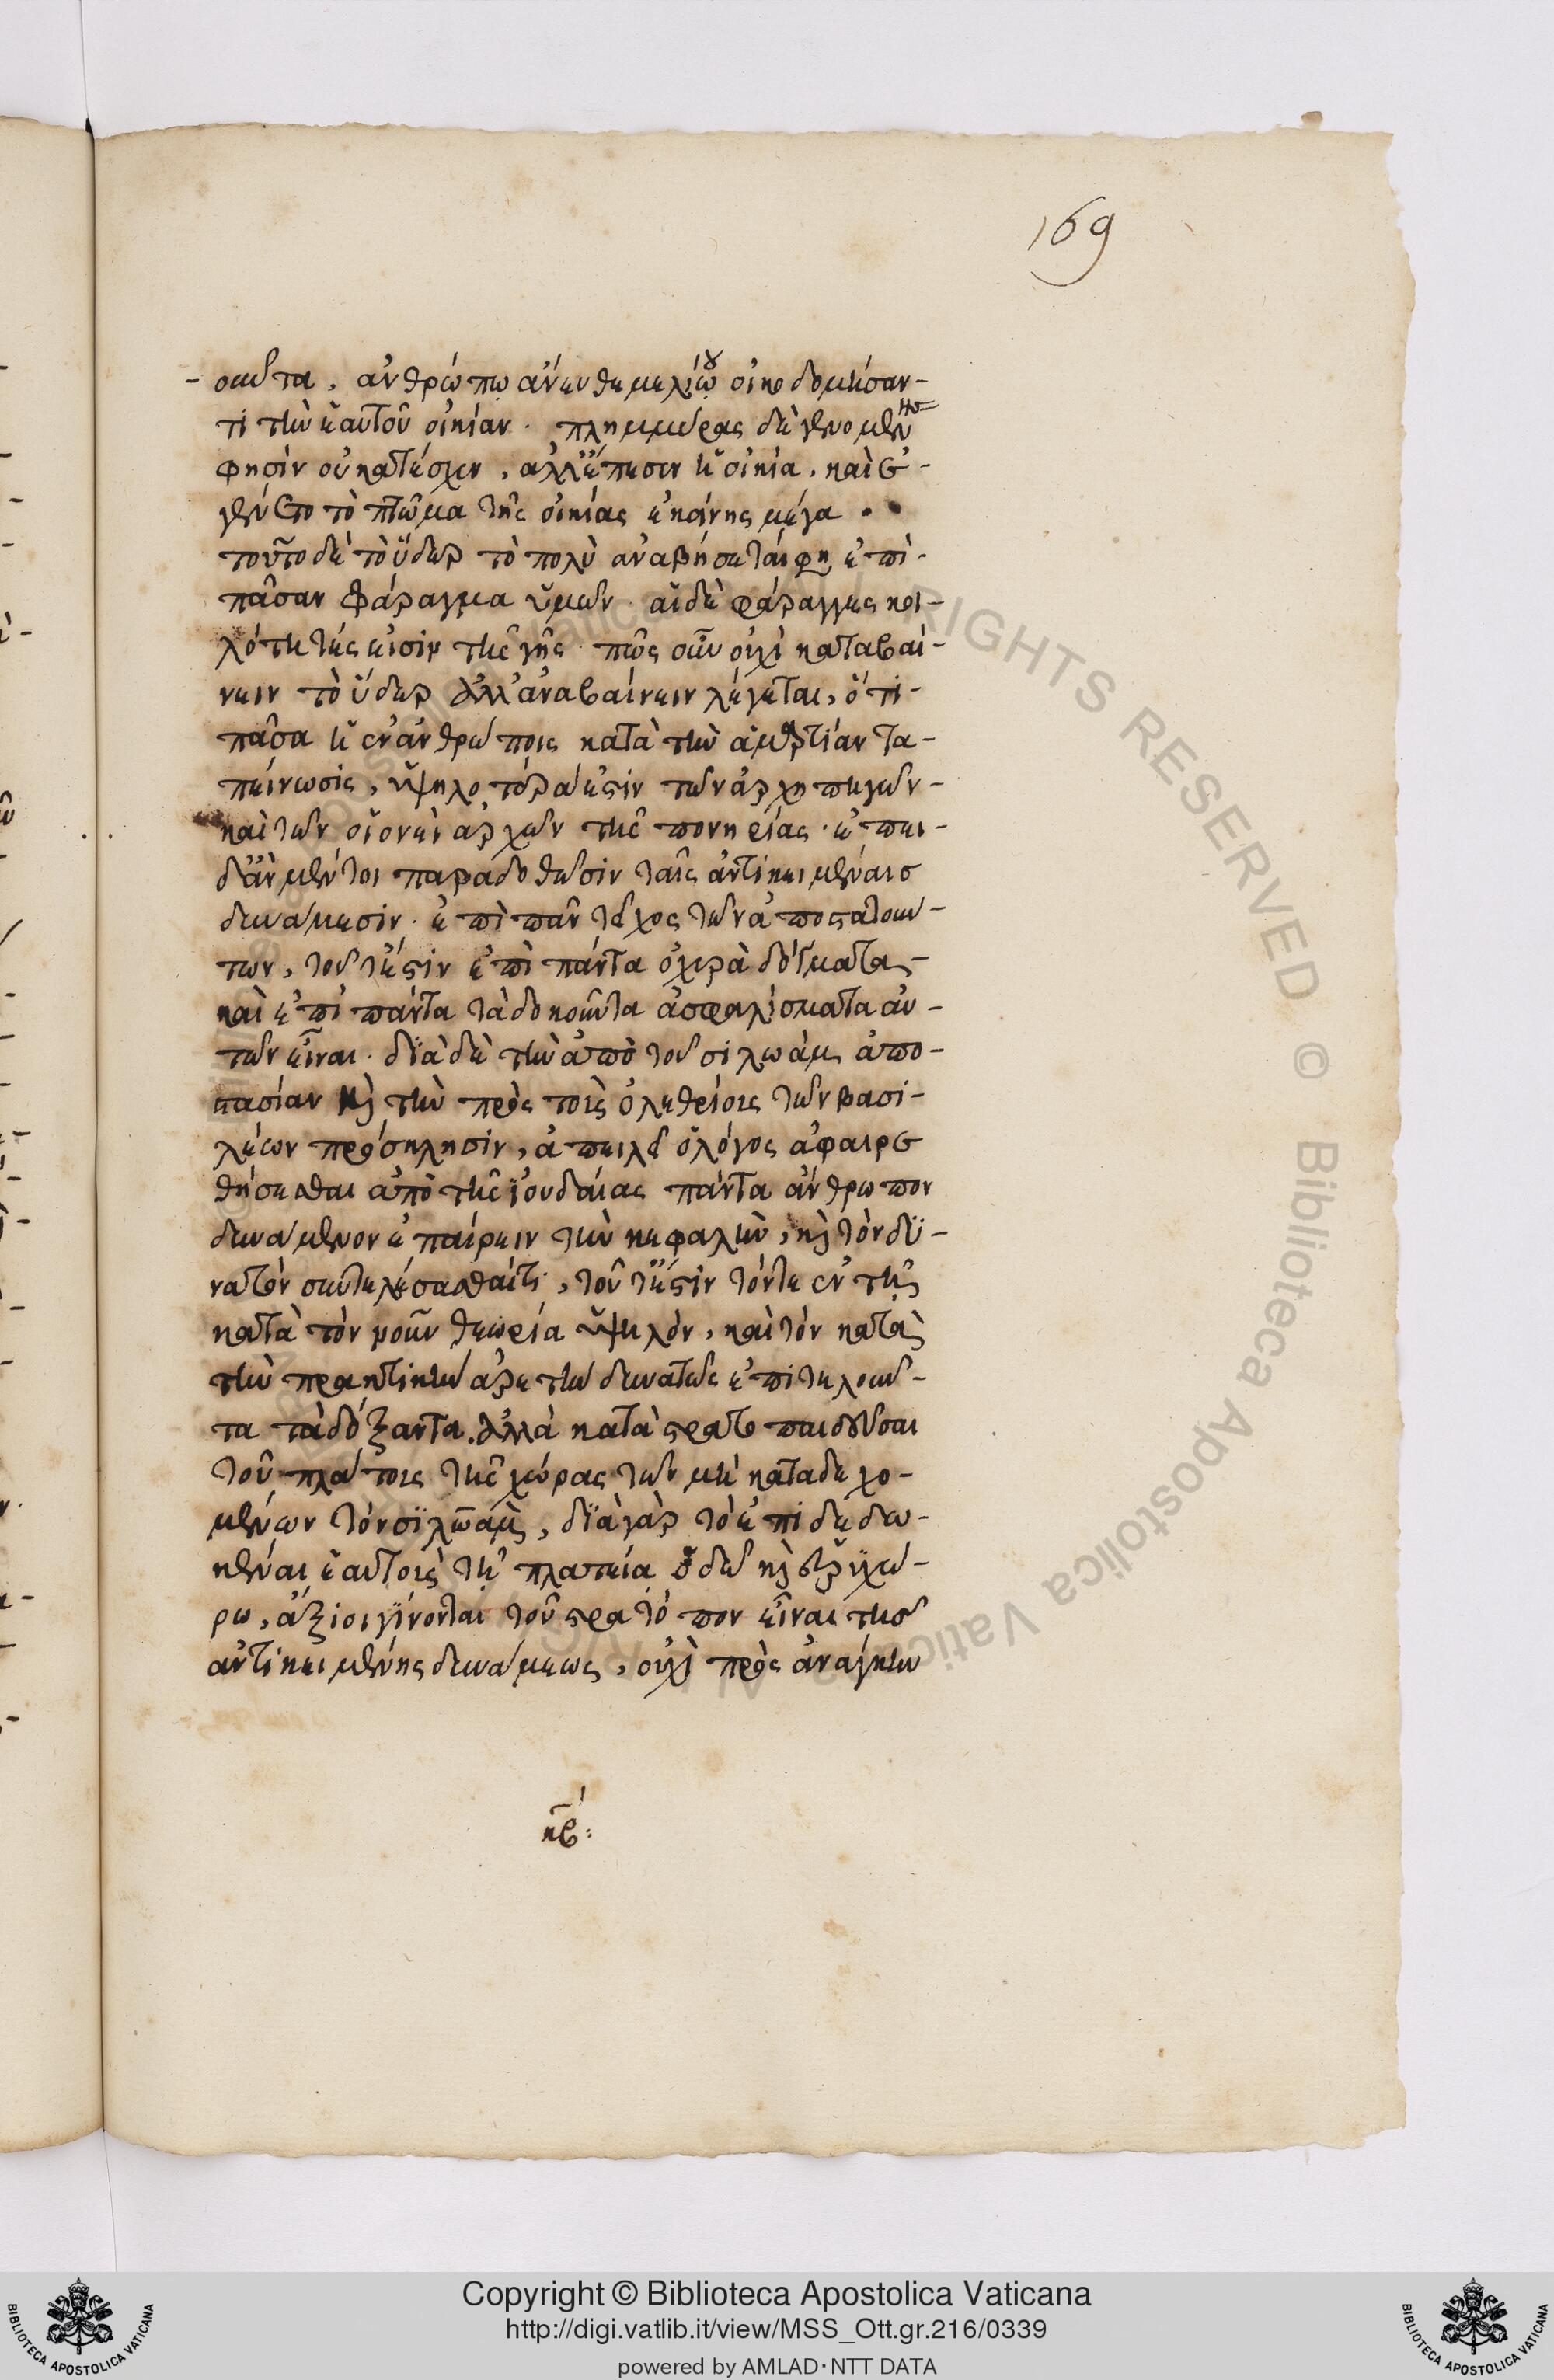 169
- σαῦτα, ἀνθρώπῳ ἄνευ θεμελίου οἰκοδομήσαν-
τι τὴν ἑαυτοῦ οἰκίαν. πλημμύρας δὲ γενομένης
φησὶν οὐ κατέσχεν, ἀλλ' ἔπεσεν ἡ οἰκία, καὶ ἐ-
γένετο τὸ πτῶμα τῆς οἰκίας ἐκείνης μέγα.
τοῦτο δὲ τὸ ὕδωρ τὸ πολὺ ἀναβήσεται φη ἐπὶ-
πᾶσαν φάραγγα ὑμῶν. αἱ δὲ φάραγγες κοι-
λότητές εἰσιν τῆς γῆς. πῶς οὖν οὐχὶ καταβαί-
νειν τὸ ὕδωρ ἀλλ' ἀναβαίνειν λέγεται, ὅτι-
πᾶσα ἡ ἐν ἀνθρώποις κατὰ τὴν ἁμαρτίαν τα-
πείνωσις, ὑψηλοτέρα ἐστὶν τῶν ἀρχῆ πηγῶν-
καὶ τῶν οἱονεὶ ἀρχῶν τῆς πονηρίας. ἐπει-
δὰν μέντοι παραδοθῶσιν ταῖς ἀντικειμέναισ
δυνάμεσιν. ἐπὶ πᾶν τεῖχος τῶν ἀποστατούν-
των, τουτέστιν ἐπὶ πάντα ὀχυρὰ δόγματα-
καὶ ἐπὶ πάντα τὰ δοκοῦντα ἀσφαλίσματα αὐ-
τῶν εἶναι. διὰ δὲ τὴν ἀπὸ τοῦ σιλωὰμ ἀπο-
στασίαν κ τὴν πρὸς τοὺς ὀλεθρίοις τῶν βασι-
λέων πρόσκλησιν, ἀπειλεῖ ὁ λόγος ἀφαιρε
θήσεσθαι ἀπὸ τῆς ἰουδαίας πάντα ἄνθρωπον
δυνάμενον ἐπαίρειν τὴν κεφαλὴν, κ τὸν δυ-
νατὸν συντελέσασθαί τι, τουτέστιν τόντε ἐν τῇ
κατὰ τὸν νοῦν θεωρία ὑψηλὸν, καὶ τὸν κατὰ
τὴν πρακτικὴν ἀρετὴν δυνατῶς ἐπιτελοῦν-
τα τὰ δόξαντα. ἀλλὰ κατὰ στρατοπαιδεῦσαι
τοῦ πλάτοις τῆς χώρας τῶν μὴ καταδεχο-
μένων τὸν σιλωὰμ, διὰ γὰρ τὸ ἐπιδεδω-
κέναι ἑαυτοὶς τῇ πλατεία ὁδῶ κ εὐρυχώ-
ρω, ἄξιοι γίνονται τοῦ στρατόπον εἶναι τησ
ἀντικειμένης δυνάμεως, οὐχὶ πρὸς ἀνάγκην
κβ:
Copyright © Biblioteca Apostolica Vaticana
http://digi.vatlib.it/view/MSS_Ott.gr.216/0339
powered by AMLAD·NTT DATA